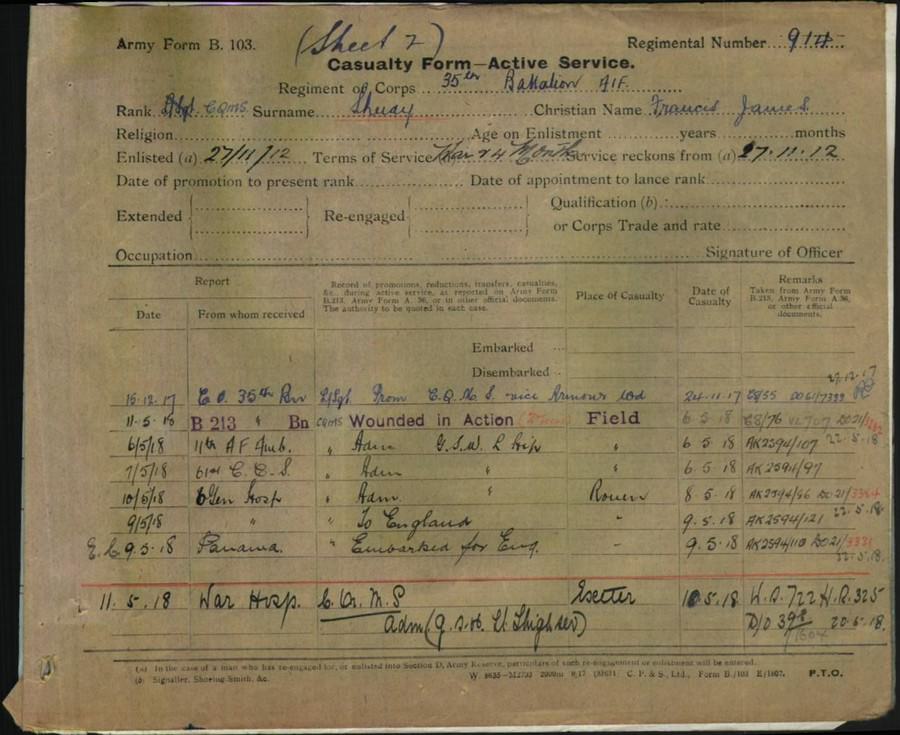 Army Form B. 103. (Sheet 2) Regimental Number 914
Casualty Form—Active Service.
Regiment or Corps 35th Battalion AIF.
Rank CQMS Surname Christian Name Francis James
Religion Age on Enlistment years months
Enlisted (a) 27/11/12 Terms of Service War & 4 Months Service reckons from (a) 27.11.12
Date of promotion to present rank Date of appointment to lance rank
Extended Re-engaged Qualification (b)
or Corps Trade and rate
Occupation Signature of Officer
Report Record of promotions, reductions, transfers, casualties, &c., during active service, as reported on Army Form B.213, Army Form A. 36, or in other official documents. The authority to be quoted in each case. Place of Casualty Date of Casualty Remarks Taken from Army Form B.213, Army Form A.36, or other official documents.
Date From whom received
Embarked
Disembarked
22.12.17
15.12.17 C.O. 35th Bn L/Sgt Prom C.Q.M.S. vice 24.11.17 DO61/7399
11.5.18 B 213 " Bn CQMS Wounded in Action Field 6 5 18
6/5/18 11th A F Amb. " Adm G.S.W. L Hip " 6 5 18 AK2594/107 22-5-18
7/5/18 61st C.C.S. " Adm " " 6.5.18 AK2594/97
10/5/18 6 Gen Hosp " Adm. " Rouen 8.5.18 AK2594/96 DO21/3384
9/5/18 " " To England 9.5.18 AK2594/121 22.5.18
E.C. 9.5.18 Panama. " Embarked for Eng. 9.5.18 AK2594/110 DO21/3331
22-5-18.
11.5.18 War Hosp. C.Qr.M.S Exeter 10.5.18 W.O.722 H.R.325
Adm (G.S.W. Lt Thigh sev) D/O 398 20.5.18.
(a) In the case of a man who has re-engaged for, or enlisted into Section D, Army Reserve, particulars of such re-engagement or enlistment will be entered.
(b) Signaller, Shoeing-Smith, &c. C. P. & S., Ltd., Form B./103 E/1807. P.T.O.